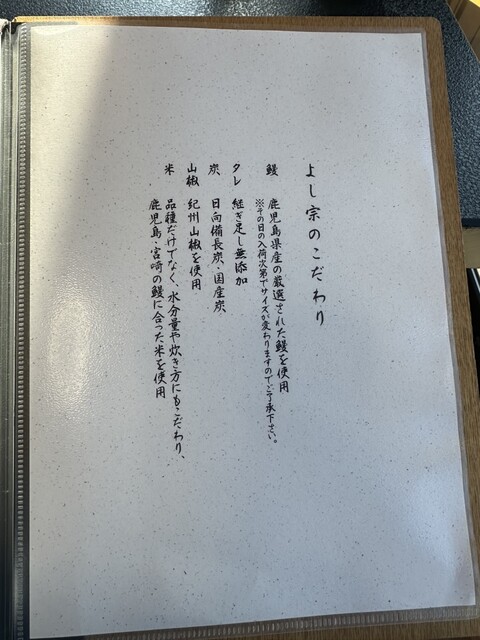 よし宗のこだわり
鰻 鹿児島県産の厳選された鰻を使用
※その日の入荷次第でサイズが変わりますのでご了承下さい。
タレ 継ぎ足し無添加
炭 日向備長炭・国産炭
山椒 紀州山椒を使用
米 品種だけでなく、水分量や炊き方にもこだわり、
鹿児島・宮崎の鰻に合った米を使用